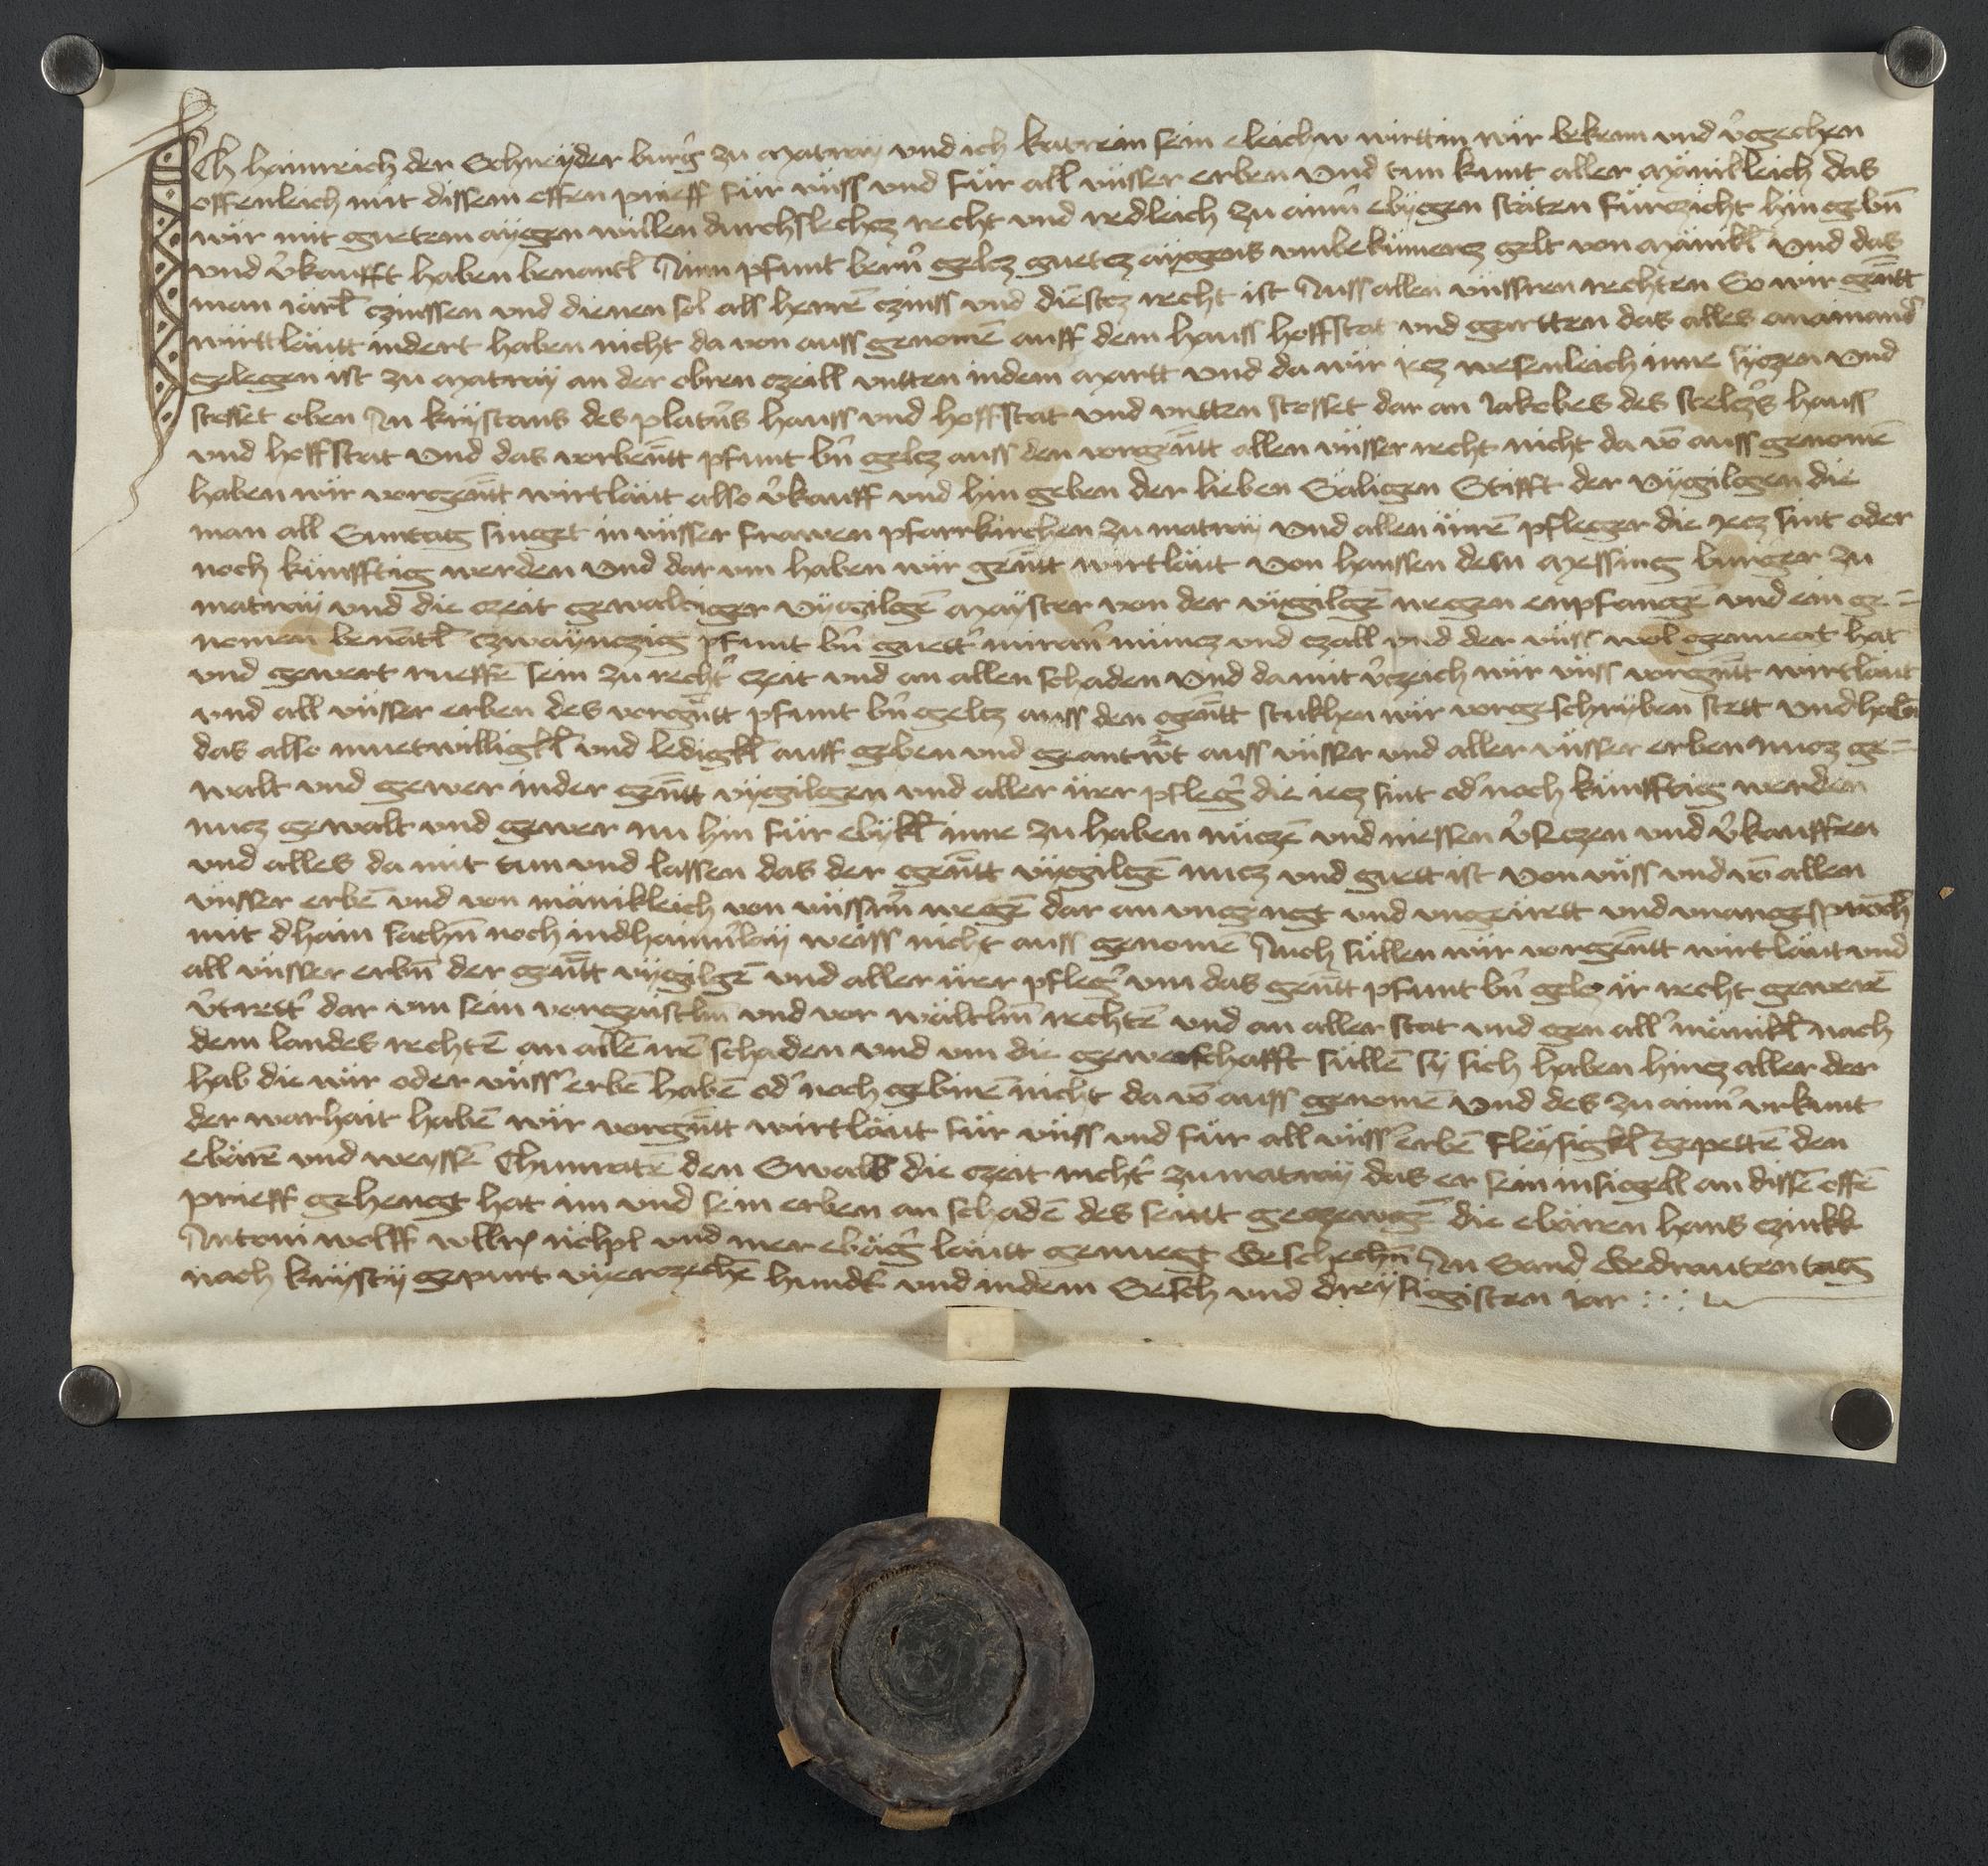 Ich hainreich der Schneyder burg̕ zu Matray und ich katrein sein eleichw wirttin wir bekenn und v̕gechen
offenleich mit dissem offen prieff für uns̈s und für all üns̈ser erben Und tun kunt aller mänikleich das
wir mit guetem aygen willen durchslechcz recht und redleich zu aim̄ ebygen stäten fürczicht hin gebn̄
und v̕kaufft haben benantl̄ Ainn pfunt bern̄ gelcz guetz aygens unbekümercz gelt von mänikl̄ Und das
man iärl̄ czinssen und dienen sol als herrē czinss und dienstcz recht ist Auss allen ünssren rechten So wir genn̄tt
wirttläutt indert haben nicht da von auss genomē auff dem hauss hoffstat und gartten das alles anainand̕
gelegen ist zu Matray an der obren czeill untten indem Martt Und da wir iecz wesenleich inne syczen Und
stosset oben An krystans des platn̄s hauss und hoffstat und untten stosset dar an Jakobes des stelcz̕s hauss
und hoffstat Und das vorben̄tt pfunt bn̄ gelcz auss den vorgen̄tt allen ünsser recht nicht da vō auss genomē
haben wir vorgen̄tt wirtläut also v̕kauff und hin geben der lieben Säligen Stifft der Vygilgen die
man all Suntag singet in ünsser frawen pfarrkirchen zu matray Und allen irrē pfleger die iecz sint oder
noch künfftig werden Und dar um haben wir gen̄tt wirtläut Von hanssen dem Messing burger zu
matray und die czeit gewaltiger Vygilgē Mayster von der vygilgē wegen enpfangē und ein ge=
nomen benātl̄ czwayнczig pfunt bn̄ guett̕ miran̄ müncz und czall und der üns̈s wol gewert hat
und gewert rueffē sein zu recht̕ czeit und an allen schaden Und damit v̕czich wir üns̈s vorgen̄tt wirtläut
und all ünsser erben des vorgen̄tt pfunt bn̄ gelcz auss den gen̄tt stukhen wir vorgeschryben stett Und habn̄
das also muetwilligkl̄ und ledigkl̄ auff geben und geantw̄t auss ünsser und aller ünsser erben nucz ge=
walt und gewer inder gen̄tt vygilgen und aller irer pfleg̕ die iecz sint od̕ noch künfftig werden
nucz gewalt und gewer nu hin für ebykl̄ inne zu haben nüczē und niessen v̕seczen und v̕kauffen
und alles da mit tun und lassen das der gen̄tt vygilgē nucz und guett ist Von üns̈s und vō allen
ünsser erbē und von mänikleich von ünssrn̄ wegē dar an ungeengt und ungeirett und unangesproch̄
mit dhain sachn̄ noch indhainn̄lay weiss nicht auss genomē Auch süllen wir vorgen̄tt wirtläut und
all ünsser erbn̄ der gen̄tt vygilgē und aller irer pfleg̕ um das gen̄tt pfunt bn̄ gelcz ir recht gewerē
v̕trett̕ dar um sein vorgaistlm̄ und vor wältlm̄ rechtē und an aller stat und gen all̕ mänikl̄ nach
dem landes rechtē an allē irē schaden und um die gewerschafft süllē sy sich haben hincz aller der
hab die wir oder ünss̕ erbē habē od̕ noch gebinē nicht da vō auss genomē Und des zu aim̄ urkunt
der warhait habē wir vorgen̄tt wirtläut für üns̈s und für all ünss̕ erbē fleysigkl̄ gepettē den
ebärē und weyssē Chunratē den Swab die czeit richt̕ zu matray das er sein insigell an dissē offē
prieff gehengt hat im und sein erben an schadē des seintt geczewgē die ebären hans czinkk
Antoni wolff ullr̄ nöhpl und mer ebäg̕ läutt genuegt Geschechn̄ An Sand Gedrautentag
nach krysty gepurt vierczechē hundt̕ und indem Sesch und dreysigisten iar